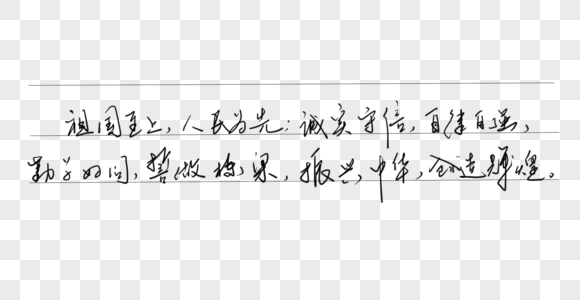 祖国至上,人民为先;诚实守信,自律自强,
勤学好问,誓做栋梁,振兴中华,创造辉煌。